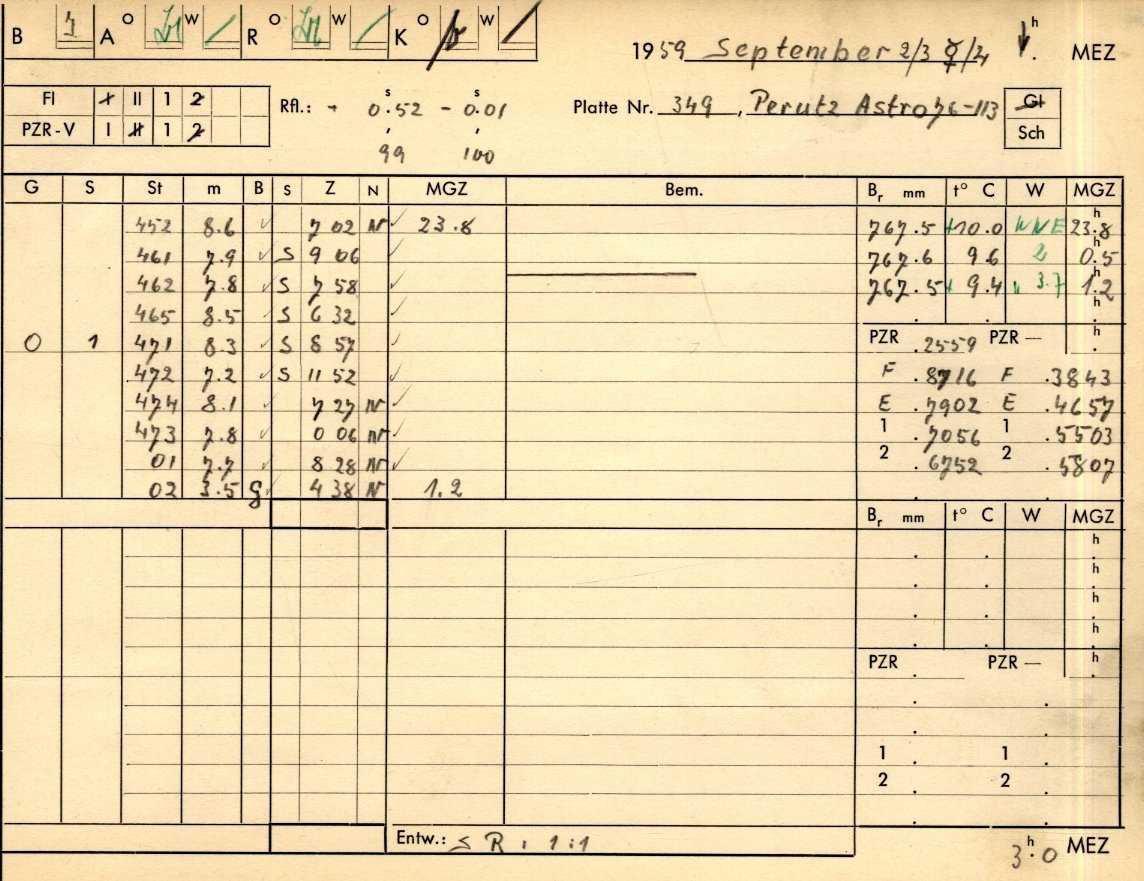 B A O W R O W K O W
1959 September 2/3 ☿/♃ h MEZ
Fl I II 1 2
PZR-V I II 1 2
Rfl.: + 0.52 s - 0.01 s
99 100
Platte Nr. 349, Perutz Astro 76-113
Gl
Sch
G S St m B S Z N MGZ Bem. Br mm t° C W MGZ
452 8.6 ✓ 7 02 N ✓ 23.8 767.5 +10.0 NNE 23.8 h
461 7.9 ✓ S 9 06 ✓ 767.6 9.6 2 0.5 h
462 7.8 ✓ S 7 58 ✓ 767.5 + 9.4 3.7 1.2 h
465 8.5 ✓ S 6 32 ✓ h
0 1 471 8.3 ✓ S 8 57 ✓ PZR .2559 PZR — h
472 7.2 ✓ S 11 52 ✓ F .8716 F .3843
474 8.1 ✓ 7 27 N ✓ E .7902 E .4657
473 7.8 ✓ 0 06 N ✓ 1 .7056 1 .5503
01 7.7 ✓ 8 28 N ✓ 2 .6752 2 .5807
02 3.5 g ✓ 4 38 N 1.2
Br mm t° C W MGZ
h
h
h
h
PZR PZR — h
1 1
2 2
Entw.: R : 1:1
3.0 h MEZ